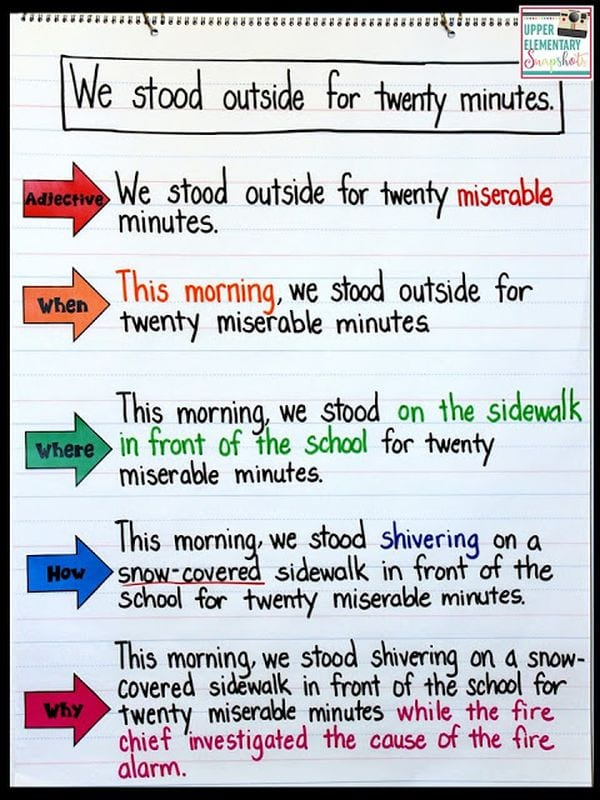 UPPER
ELEMENTARY
Snapshots
We stood outside for twenty minutes.
Adjective
We stood outside for twenty miserable
minutes.
When
This morning, we stood outside for
twenty miserable minutes
Where
This morning, we stood on the sidewalk
in front of the school for twenty
miserable minutes.
How
This morning, we stood shivering on a
snow-covered sidewalk in front of the
school for twenty miserable minutes.
Why
This morning, we stood shivering on a snow-
covered sidewalk in front of the school for
twenty miserable minutes while the fire
chief investigated the cause of the fire
alarm.